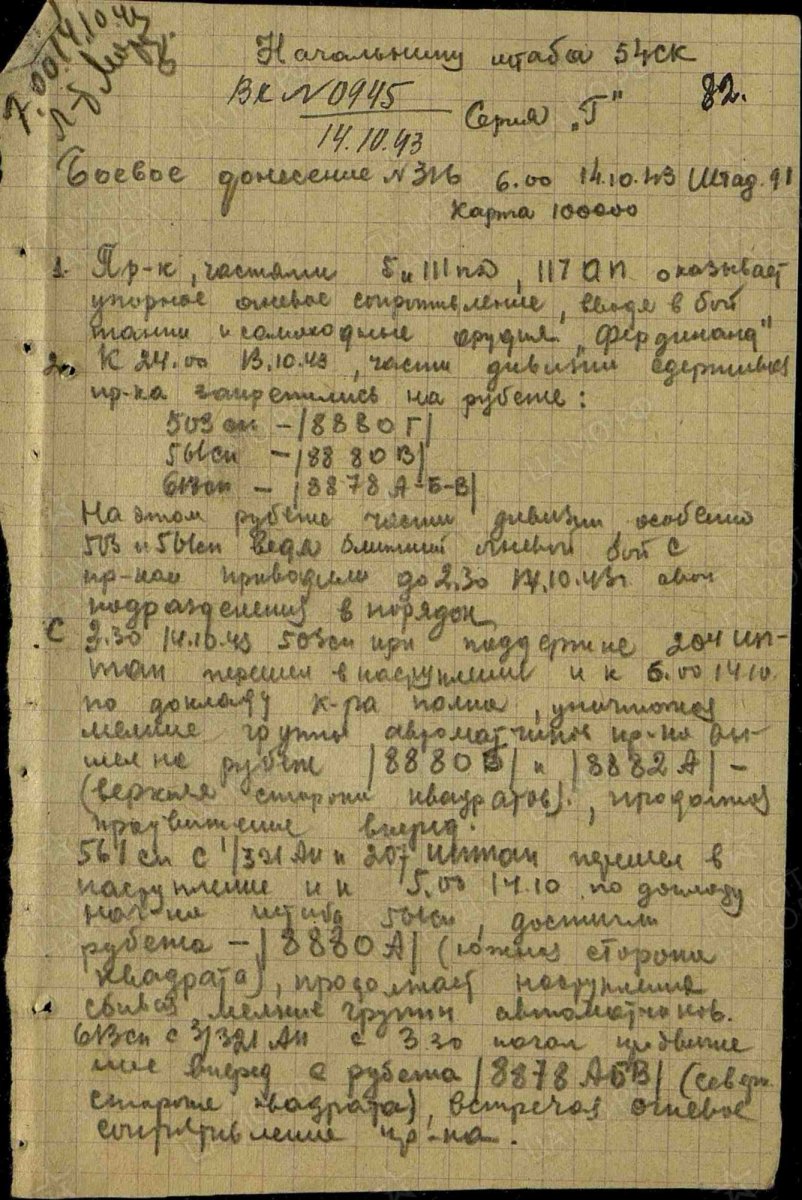 7.00 14.10.43
Начальнику штаба 54СК
Вх №0945
14.10.43
Серия „Г"
82.
Боевое донесение №316 6.00 14.10.43 Штад. 91
Карта 100000
1. Пр-к, частями 5 и 111 пд, 117 ап оказывает
упорное огневое сопротивление, вводя в бой
танки и самоходные орудия „Фердинанд"
2. К 24.00 13.10.43, части дивизии сдерживая
пр-ка закрепились на рубеже:
503 сп – |8880 Г|
561 сп – |8880 В|
613 сп – |8878 А-Б-В|
На этом рубеже части дивизии особенно
503 и 561 сп ведя ближний огневой бой с
пр-ком приводили до 2.30 14.10.43г свои
подразделения в порядок
С 2.30 14.10.43 503 сп при поддержке 204 ип-
тап перешел в наступление и к 6.00 14.10
по докладу к-ра полка, уничтожая
мелкие группы автоматчиков пр-ка вы-
шел на рубеж |8880 Б| и |8882 А| –
(верхняя сторона квадратов), продолжая
продвижение вперед.
561 сп с 1/321 Ап и 207 иптап перешел в
наступление и к 5.00 14.10 по докладу
нач-ка штаба 561 сп, достигли
рубежа – |8880 А| (южная сторона
квадрата), продолжает наступление
сбивая мелкие группы автоматчиков.
613 сп с 3/321 Ап с 3.30 начал продвиже
ние вперед с рубежа |8878 АБВ| (северн.
сторона квадрата), встречая огневое
сопротивление пр-ка.